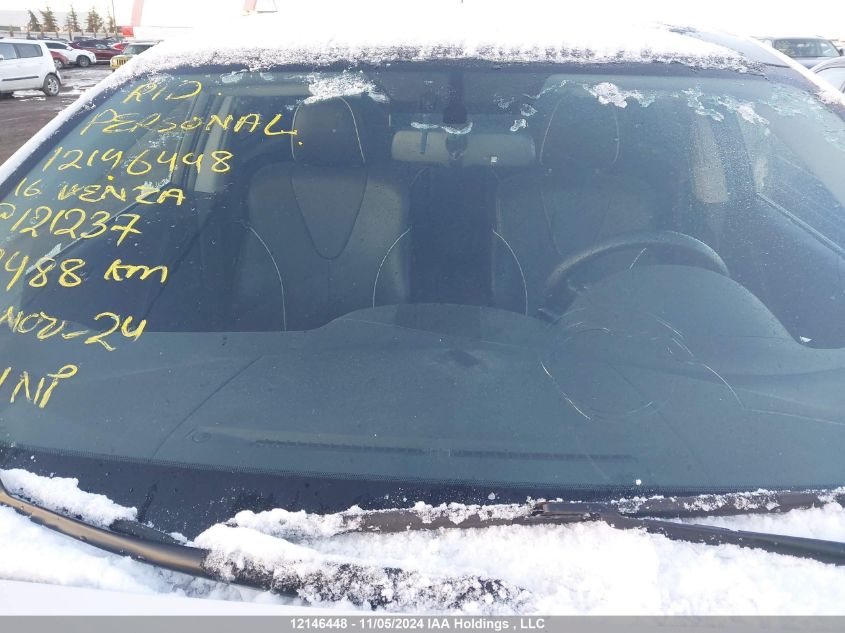 RID.
PERSONAL.
12146448
16 VENZA
@121237
488 km
NOV-24
12146448 - 11/05/2024 IAA Holdings , LLC